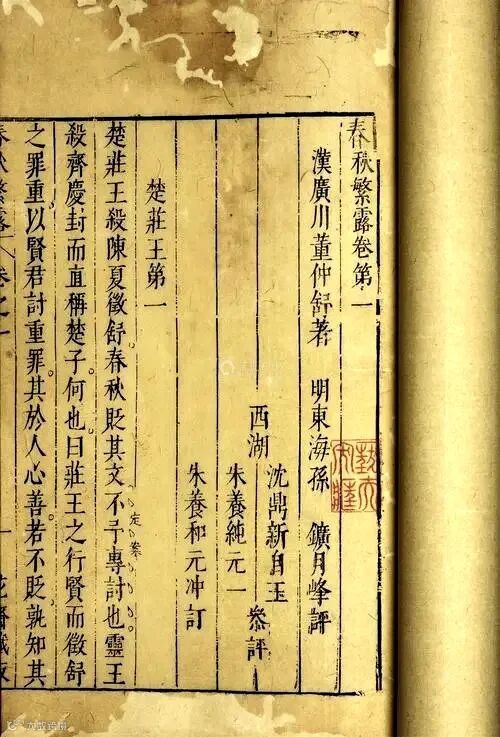 春秋繁露卷第一
漢廣川董仲舒著 明東海孫 鑛月峰評
西湖 沈鼎新自玉
朱養純元一 叅評
朱養和元冲訂
楚莊王第一
楚莊王殺陳夏徵舒春秋貶其文不予專討也靈王
定案
殺齊慶封而直稱楚子何也曰莊王之行賢而徵舒
之罪重以賢君討重罪其於人心善若不貶孰知其
春秋繁露 卷之一 一 花齋藏板